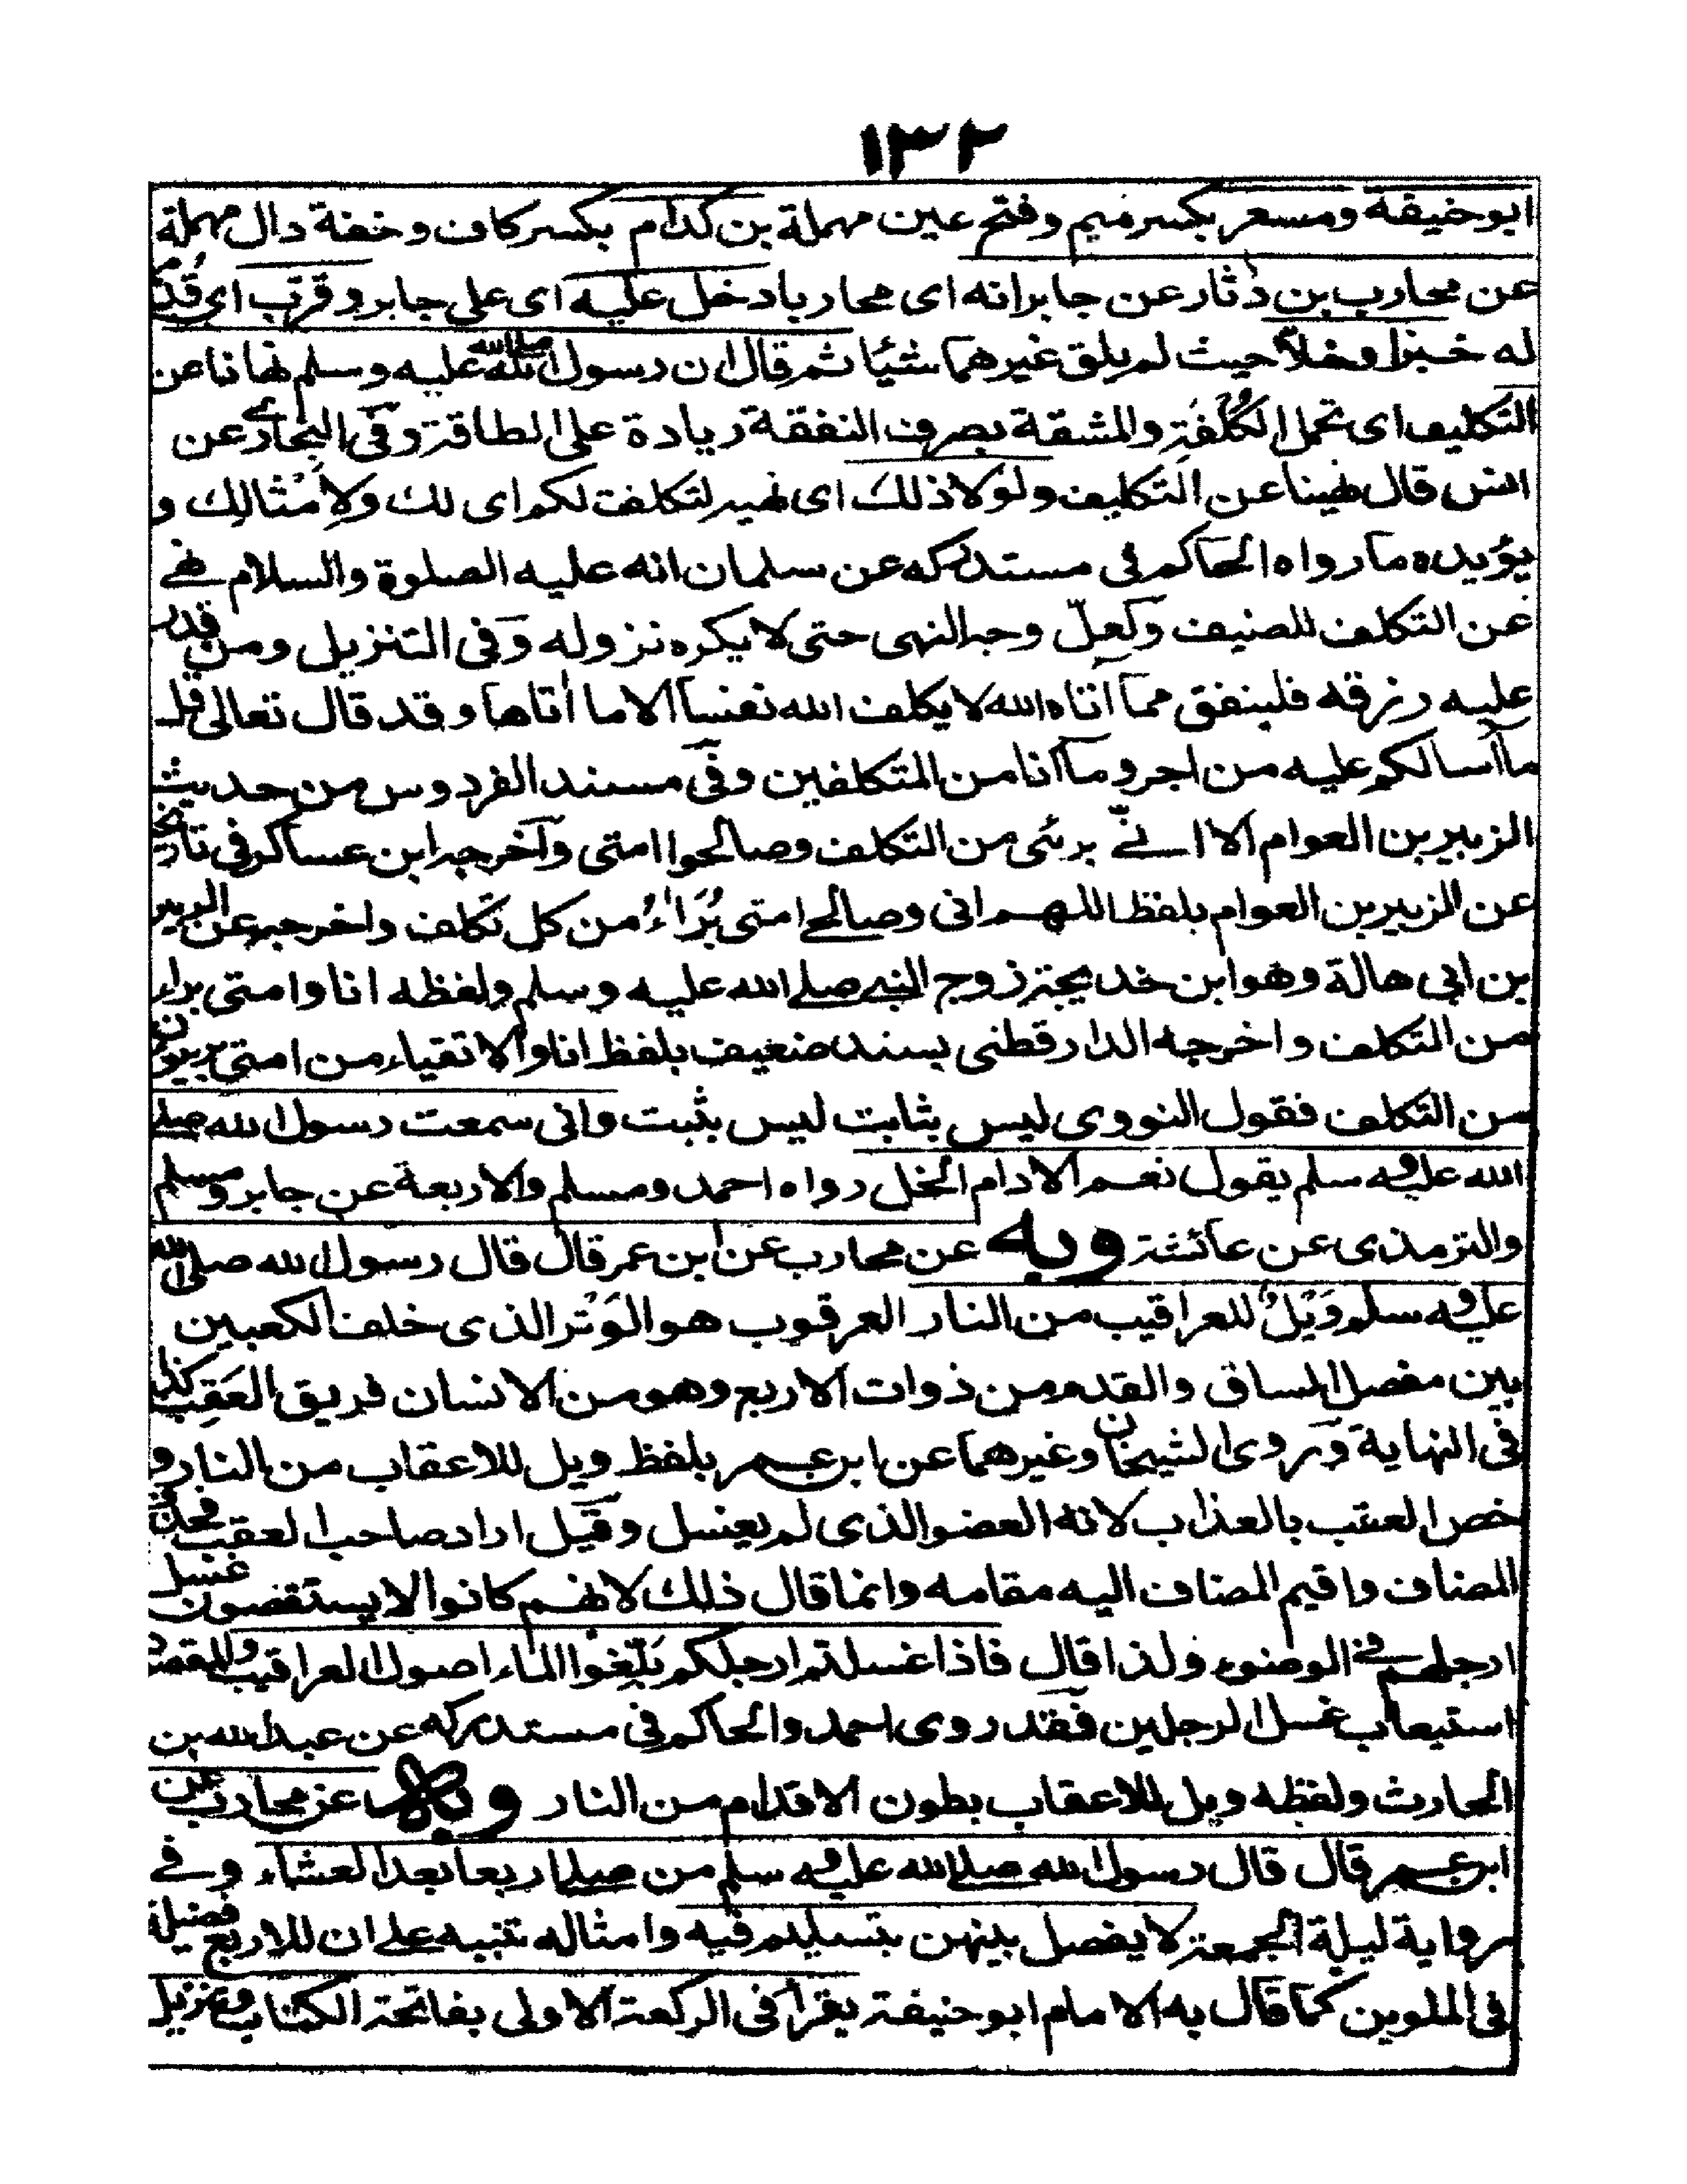 ١٣٢
ابوحنيفة ومسعر بكسرميم وفتح عين مهملة بن كدام بكسركاف وخفة دال مهملة
عن محارب بن دثار عن جابرانه اى محاربا دخل عليه اى على جابر وقرّب اى قدم
له خبزا وخلا حيث لم يلق غيرهما شيئا ثم قال ان رسول الله صلى الله عليه وسلم نهانا عن
التكليف اى تحمل الكُلفة والمشقة بصرف النفقة زيادة على الطاقة وفى البخارى عن
انس قال نهينا عن التكليف ولولا ذلك اى نهيه لتكلفت لكم اى لك ولامثالك و
يؤيده مارواه الحاكم فى مستدركه عن سلمان انه عليه الصلوة والسلام نهى
عن التكلف للضيف ولعلّ وجه النهى حتى لا يكره نزوله وفى التنزيل ومن قدر
عليه رزقه فلينفق مما آتاه الله لا يكلف الله نفسا الا ما اتاها وقد قال تعالى قل
ما أسالكم عليه من اجر وما انا من المتكلفين وفى مسند الفردوس من حديث
الزبير بن العوام الا انى برئى من التكلف وصالحوا امتى وآخرجه ابن عساكر فى تاريخه
عن الزبير بن العوام بلفظ اللهم انى وصالحى امتى بُرَاءُ من كل تكلف واخرجه عن الزبير
بن ابى هالة وهو ابن خديجة زوج النبى صلى الله عليه وسلم ولفظه انا وامتى براء
من التكلف واخرجه الدارقطنى بسند ضعيف بلفظ انا والاتقياء من امتى بريون
من التكلف فقول النووى ليس بثابت ليس بثبت وانى سمعت رسول الله صلى
الله عليه وسلم يقول نعم الادام الخل رواه احمد ومسلم والاربعة عن جابر ومسلم
والترمذى عن عائشة وبه عن محارب عن ابن عمر قال قال رسول الله صلى الله
عليه وسلم وَيْلٌ للعراقيب من النار العرقوب هو الوَتْر الذى خلف الكعبين
بين مفصل الساق والقدم من ذوات الاربع وهو من الانسان فريق العَقِب كذا
فى النهاية وروى الشيخان وغيرهما عن ابن عمر بلفظ ويل للاعقاب من النار و
خص العقب بالعذاب لانه العضو الذى لم يغسل وقيل اراد صاحب العقب فحذف
المضاف واقيم المضاف اليه مقامه وانما قال ذلك لانهم كانوا لا يستقصون غسل
ارجلهم فى الوضوء ولذا قال فاذا غسلتم ارجلكم بَلِّغوا الماء اصول العراقيب والمقصود
استيعاب غسل الرجلين فقد روى احمد والحاكم فى مستدركه عن عبدالله بن
الحارث ولفظه ويل للاعقاب بطون الاقدام من النار وبه عن محارب عن
ابن عمر قال قال رسول الله صلى الله عليه وسلم من صلى اربعا بعد العشاء وفى
رواية ليلة الجمعة لا يفصل بينهن بتسليم فيه وامثاله تنبيه على ان للاربع فضيلة
فى الملوين كما قال به الامام ابو حنيفة يقرأ فى الركعة الاولى بفاتحة الكتاب وتنزيل